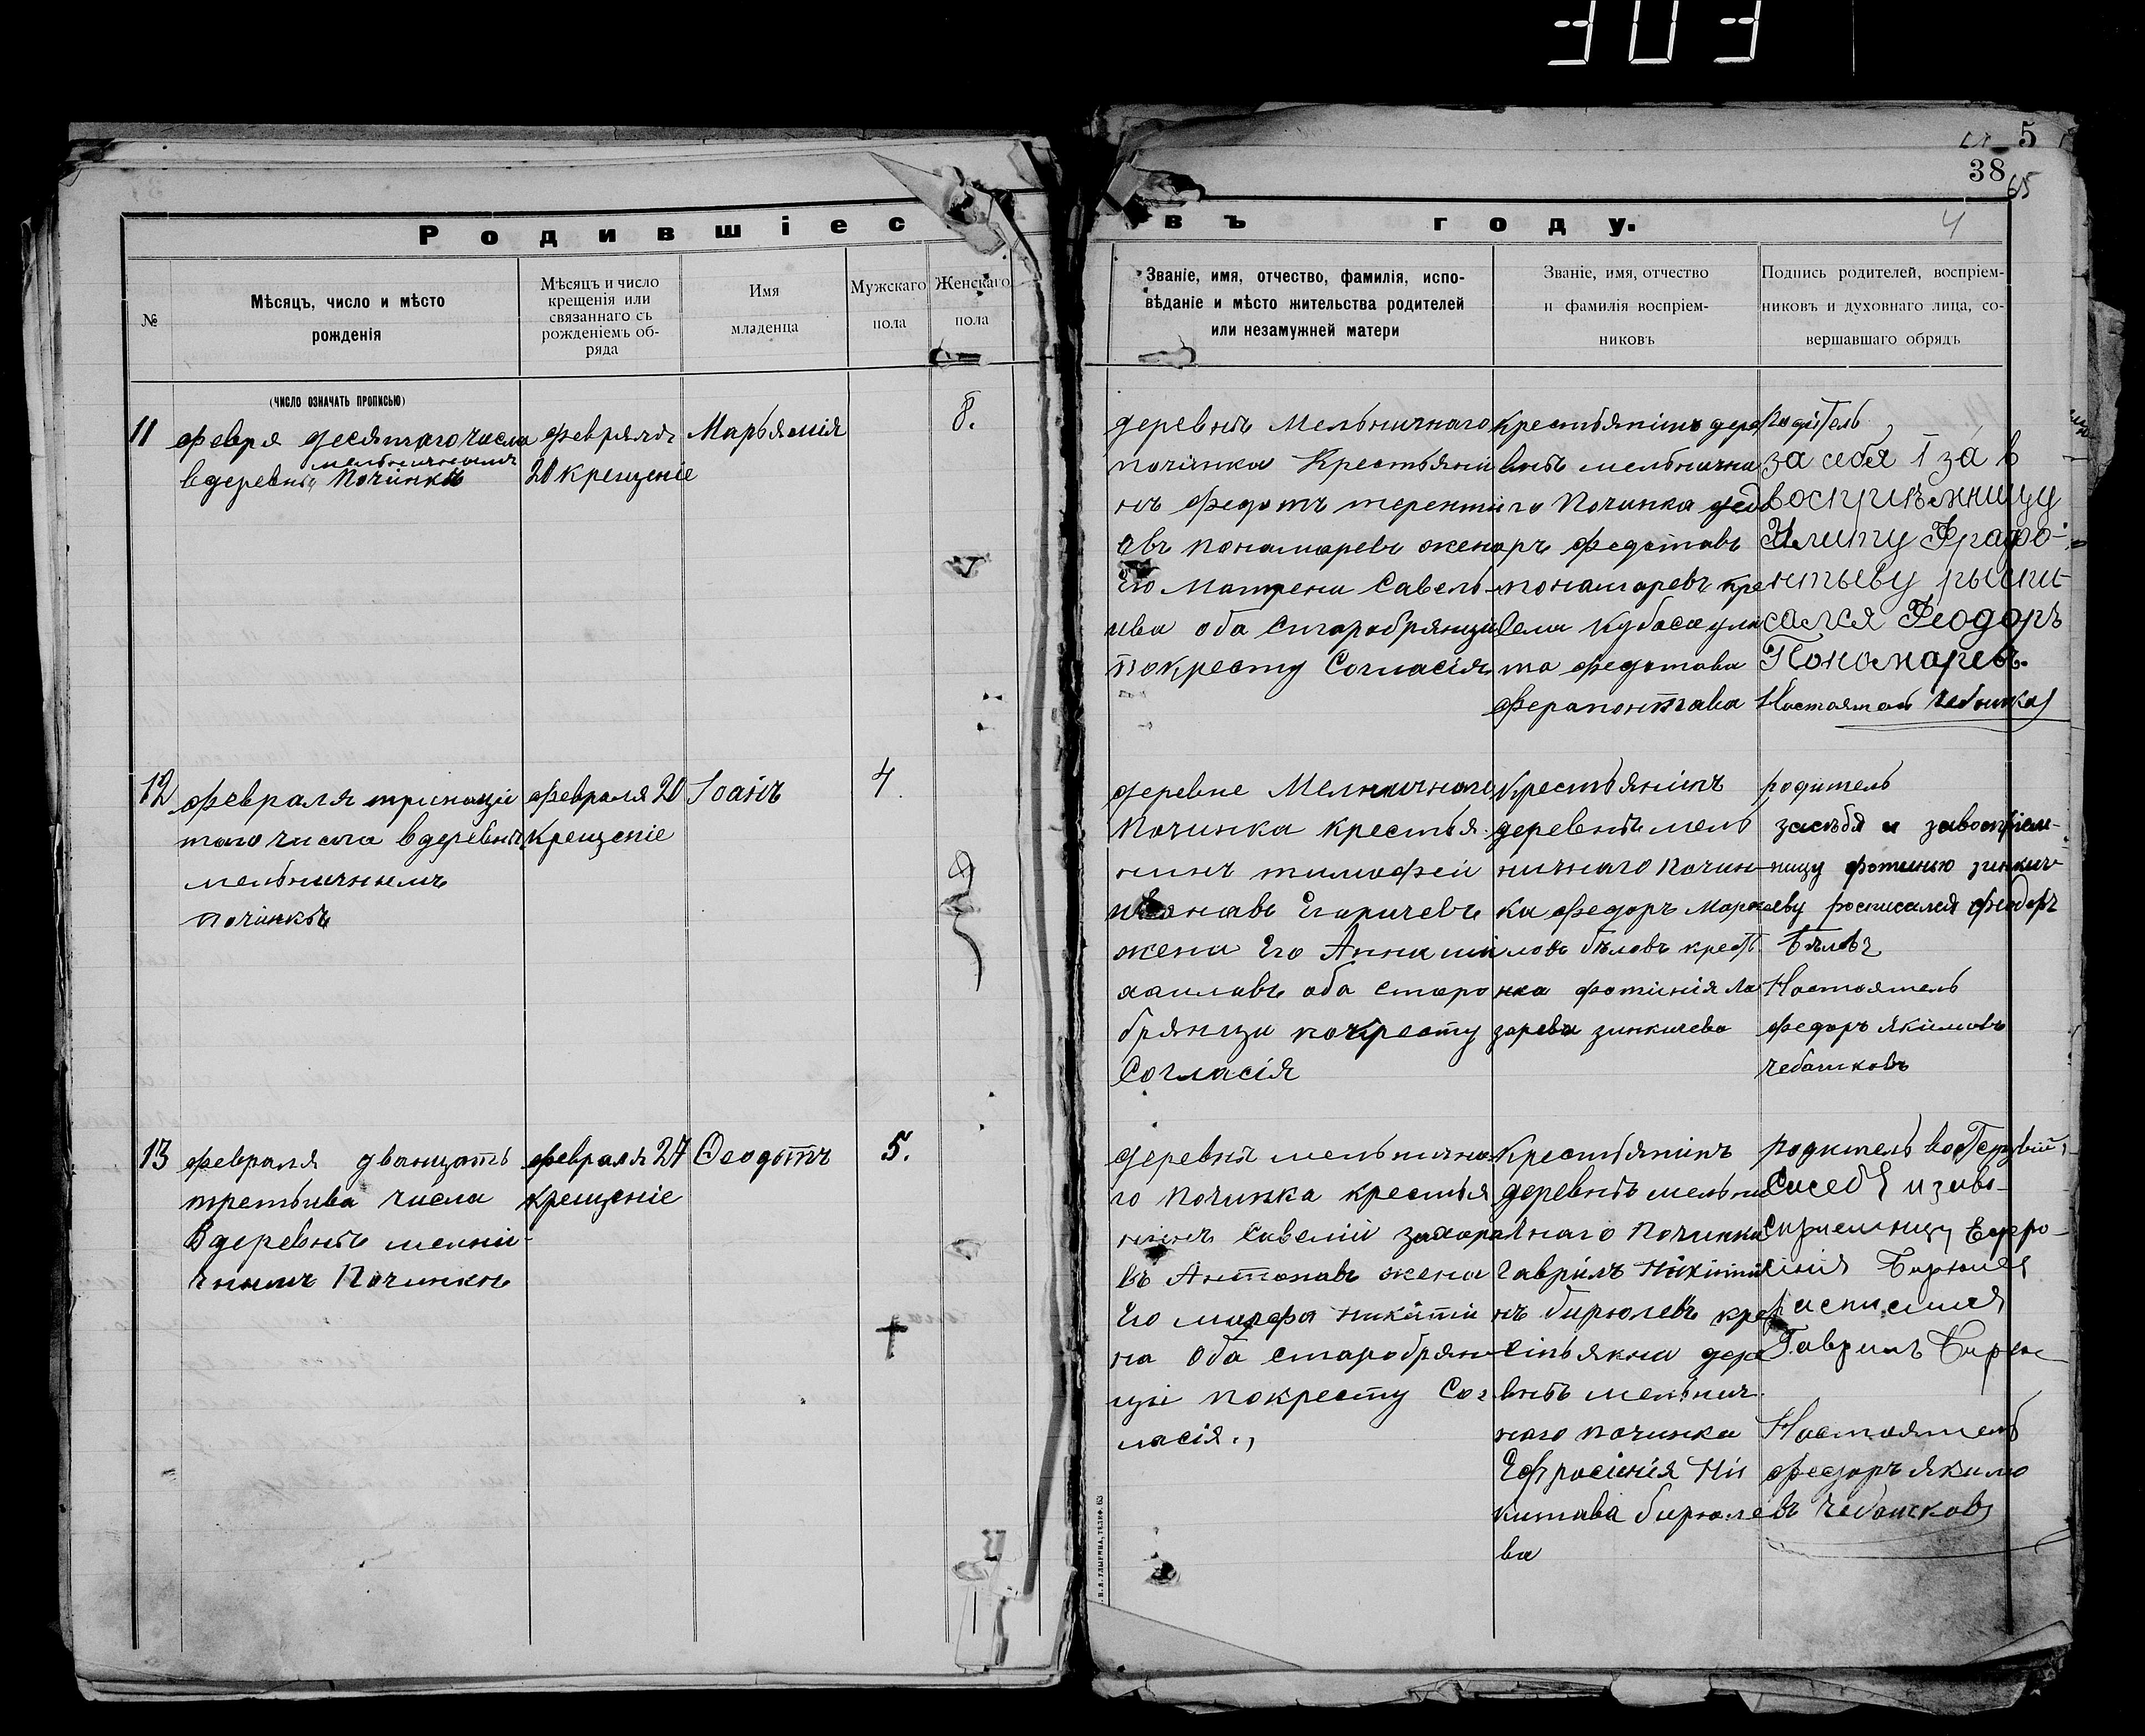 303
5
38
65
Родившіес въ году.
4
№
Мѣсяцъ, число и мѣсто
рожденія
Мѣсяцъ и число
крещенія или
связаннаго съ
рожденіемъ об-
ряда
Имя
младенца
Мужскаго
пола
Женскаго
пола
Званіе, имя, отчество, фамилія, испо-
вѣданіе и мѣсто жительства родителей
или незамужней матери
Званіе, имя, отчество
и фамилія воспріем-
никовъ
Подпись родителей, воспріем-
никовъ и духовнаго лица, со-
вершавшаго обрядъ
(число означать прописью)
11
февря десятаго числа
мельничнымъ
вдеревнѣ Починкѣ
20 крещеніе
Марьямія
8.
деревня Мельничнаго
починка Крестьяни
нъ федотъ теренти
овъ пономаревъ жена
Его Матрена Савель-
ива оба старобрянци
покресту Согласія
крестьянинъ дере
внѣ мельнична
го Починка
оръ федотавъ
пономаревъ кре
та федотава
ферапонтава
Родітель
за себя і за в
воспріѣмницу
нтьеву
сался Феодоръ
Пономаревъ.
12
февраля тринаці
таго числа вдеревнѣ
мельничнымъ
починкѣ
февраля 20
крещеніе
Іоанъ
4
деревне Мелничнаго
Починка крестья
нинъ тимофеи
Егаричевъ
жена Его Анна ми
хаилавъ оба старо
брянци покресту
Согласія
Крестьянінъ
деревнѣ мель
ничнаго Почин
ка федоръ Марке
ловъ бѣловъ крест
нка фотинія Ла
зарева зинкичева
родитель
засѣбя и завоспріем-
ницу фотинью зинкич-
еву росписался федоръ
Бѣловъ
Настоятель
федоръ якимовъ
чебашковъ
13
февраля дванцать
третьива числа
Вдеревнѣ мелни-
чнымъ Починкѣ
февраля 27
крещеніе
Ѳеодотъ
5.
деревня мельнична
го Починка крестья
нинъ Савелій захаро
въ Антонавъ жена
Его марфа никити
на Оба старобрян
ци покресту Сог
ласія.,
Крестьянинъ
деревнѣ мельни
чнаго Починка
Гаврилъ Нікитин
нъ бирюлевъ кре
стьянка дере
внѣ мельнич
наго починка
Ефросінія Ни
китава бирюле
ва
родитель
росписался
Гаврилъ Бирюле
Настоятель
федоръ якимо
въ чебашковъ